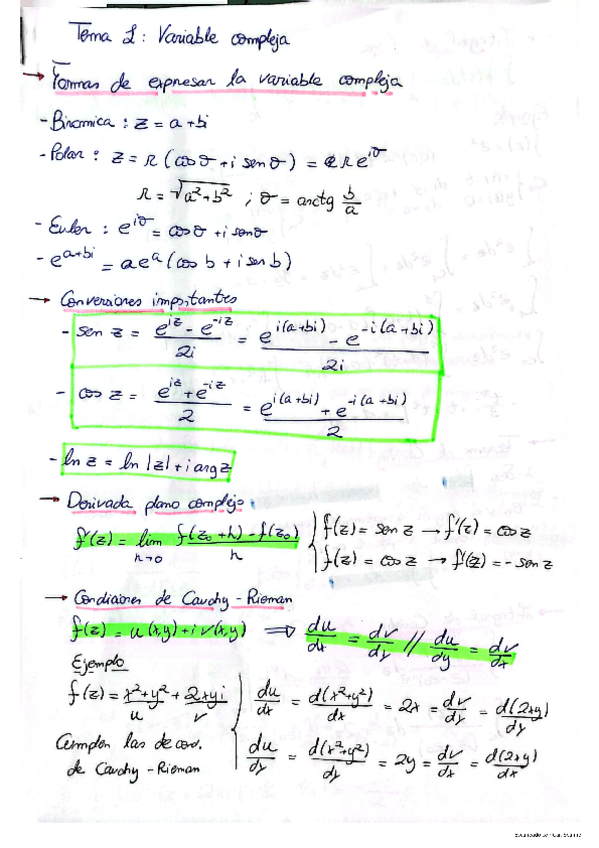 Tema 1: Variable compleja
→ Formas de expresar la variable compleja
- Binomica : z = a + bi
- Polar : z = r (cos θ + i sen θ) = r e^{iθ}
r = √(a² + b²) ; θ = arctg b/a
- Euler : e^{iθ} = cos θ + i sen θ
- e^{a+bi} = a e^a (cos b + i sen b)
→ Conversiones importantes
- sen z = (e^{iz} - e^{-iz})/2i = (e^{i(a+bi)} - e^{-i(a+bi)})/2i
- cos z = (e^{iz} + e^{-iz})/2 = (e^{i(a+bi)} + e^{-i(a+bi)})/2
- ln z = ln |z| + i arg z
→ Derivada plano complejo
f'(z) = lim h→0 (f(z₀+h) - f(z₀))/h
f(z) = sen z → f'(z) = cos z
f(z) = cos z → f'(z) = - sen z
→ Condiciones de Cauchy-Rieman
f(z) = u(x,y) + i v(x,y) ⇒ du/dx = dv/dy // du/dy = dv/dx
Ejemplo
f(z) = x² + y² + 2xyi
u v
du/dx = d(x²+y²)/dx = 2x = dv/dy = d(2xy)/dy
Cumplen las de cov.
de Cauchy-Rieman
du/dy = d(x²+y²)/dy = 2y = dv/dx = d(2xy)/dx